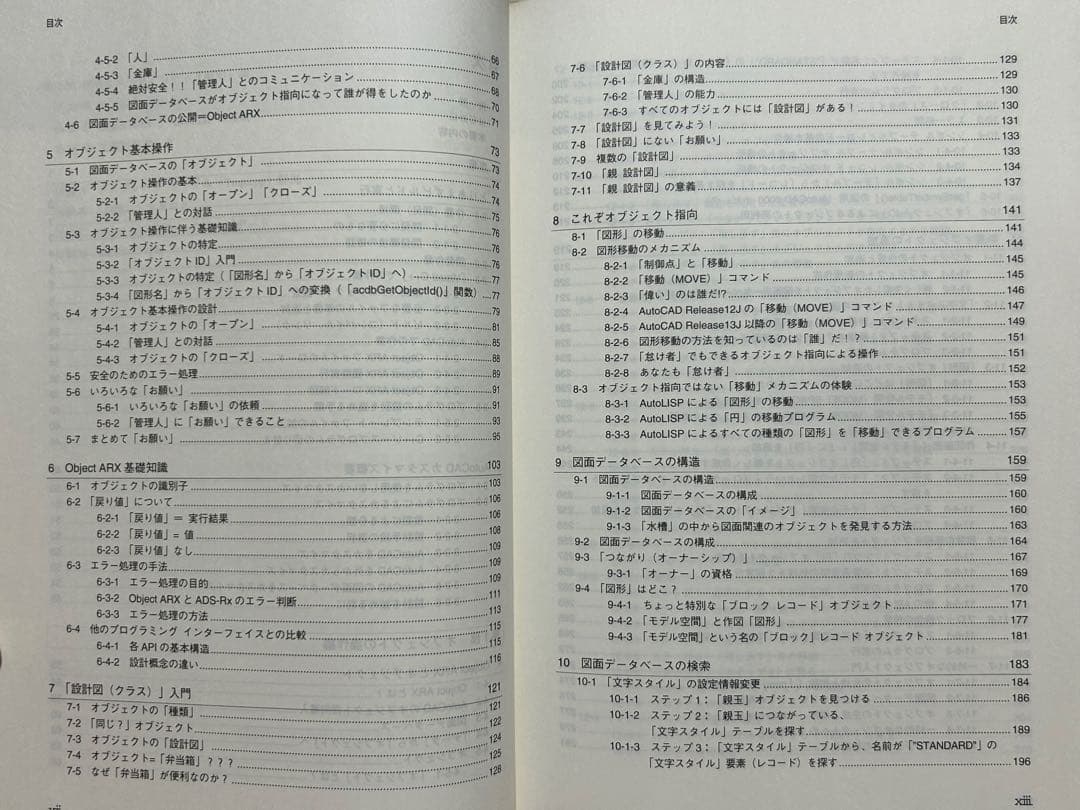 目次
4-5-2 「人」 66
4-5-3 「金庫」 67
4-5-4 絶対安全！！「管理人」とのコミュニケーション 68
4-5-5 図面データベースがオブジェクト指向になって誰が得をしたのか 70
4-6 図面データベースの公開＝Object ARX 71
5 オブジェクト基本操作 73
5-1 図面データベースの「オブジェクト」 73
5-2 オブジェクト操作の基本 74
5-2-1 オブジェクトの「オープン」「クローズ」 74
5-2-2 「管理人」との対話 75
5-3 オブジェクト操作に伴う基礎知識 76
5-3-1 オブジェクトの特定 76
5-3-2 「オブジェクト ID」入門 76
5-3-3 オブジェクトの特定（「図形名」から「オブジェクト ID」へ） 77
5-3-4 「図形名」から「オブジェクト ID」への変換（「acdbGetObjectId()」関数） 77
5-4 オブジェクト基本操作の設計 79
5-4-1 オブジェクトの「オープン」 81
5-4-2 「管理人」との対話 85
5-4-3 オブジェクトの「クローズ」 88
5-5 安全のためのエラー処理 89
5-6 いろいろな「お願い」 91
5-6-1 いろいろな「お願い」の依頼 91
5-6-2 「管理人」に「お願い」できること 93
5-7 まとめて「お願い」 95
6 Object ARX 基礎知識 103
6-1 オブジェクトの識別子 103
6-2 「戻り値」について 106
6-2-1 「戻り値」＝ 実行結果 106
6-2-2 「戻り値」= 値 108
6-2-3 「戻り値」なし 109
6-3 エラー処理の手法 109
6-3-1 エラー処理の目的 109
6-3-2 Object ARX と ADS-Rx のエラー判断 111
6-3-3 エラー処理の方法 113
6-4 他のプログラミング インターフェイスとの比較 115
6-4-1 各 API の基本構造 115
6-4-2 設計概念の違い 116
7 「設計図（クラス）」入門 121
7-1 オブジェクトの「種類」 121
7-2 「同じ？」オブジェクト 122
7-3 オブジェクトの「設計図」 124
7-4 オブジェクト=「弁当箱」？？？ 125
7-5 なぜ「弁当箱」が便利なのか？ 126
目次
7-6 「設計図（クラス）」の内容 129
7-6-1 「金庫」の構造 129
7-6-2 「管理人」の能力 130
7-6-3 すべてのオブジェクトには「設計図」がある！ 130
7-7 「設計図」を見てみよう！ 131
7-8 「設計図」にない「お願い」 133
7-9 複数の「設計図」 133
7-10 「親 設計図」 134
7-11 「親 設計図」の意義 137
8 これぞオブジェクト指向 141
8-1 「図形」の移動 141
8-2 図形移動のメカニズム 144
8-2-1 「制御点」と「移動」 145
8-2-2 「移動（MOVE）」コマンド 145
8-2-3 「偉い」のは誰だ!? 146
8-2-4 AutoCAD Release12J の「移動（MOVE）」コマンド 147
8-2-5 AutoCAD Release13J 以降の「移動（MOVE）」コマンド 149
8-2-6 図形移動の方法を知っているのは「誰」だ！？ 151
8-2-7 「怠け者」でもできるオブジェクト指向による操作 151
8-2-8 あなたも「怠け者」 152
8-3 オブジェクト指向ではない「移動」メカニズムの体験 153
8-3-1 AutoLISP による「図形」の移動 153
8-3-2 AutoLISP による「円」の移動プログラム 155
8-3-3 AutoLISP によるすべての種類の「図形」を「移動」できるプログラム 157
9 図面データベースの構造 159
9-1 図面データベースの構造 159
9-1-1 図面データベースの構成 160
9-1-2 図面データベースの「イメージ」 160
9-1-3 「水槽」の中から図面関連のオブジェクトを発見する方法 163
9-2 図面データベースの構成 164
9-3 「つながり（オーナーシップ）」 167
9-3-1 「オーナー」の資格 169
9-4 「図形」はどこ？ 170
9-4-1 ちょっと特別な「ブロック レコード」オブジェクト 171
9-4-2 「モデル空間」と作図「図形」 177
9-4-3 「モデル空間」という名の「ブロック」レコード オブジェクト 181
10 図面データベースの検索 183
10-1 「文字スタイル」の設定情報変更 184
10-1-1 ステップ 1：「親玉」オブジェクトを見つける 186
10-1-2 ステップ 2：「親玉」につながっている、
「文字スタイル」テーブルを探す 189
10-1-3 ステップ 3：「文字スタイル」テーブルから、名前が「"STANDARD"」の
「文字スタイル」要素（レコード）を探す 196
xiii